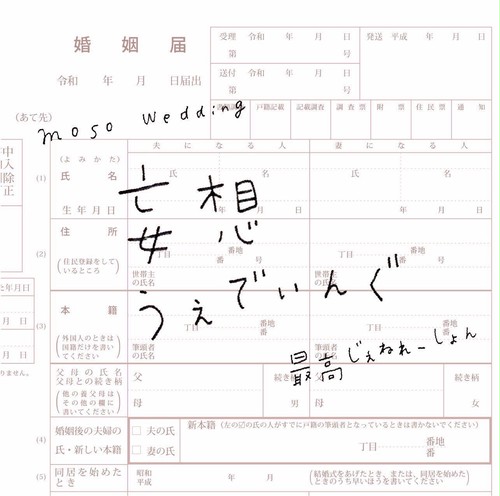 婚姻届
令和 年 月 日届出
受理 令和 年 月 日
第 号
発送 平成 年 月
送付 令和 年 月 日
第 号
戸籍記載 記載調査 調査票 附票 住民票 通知
(あて先)
moso wedding
夫になる人 妻になる人
(1)
(よみかた)
氏名
氏 名 氏 名
妄想
生年月日
年 月 日 年 月 日
(2)
住所
(住民登録をしているところ)
丁目 番地 番 号
丁目 番地 番 号
世帯主の氏名
世帯主の氏名
うぇでぃんぐ
(3)
本籍
(外国人のときは国籍だけを書いてください)
丁目 番地 番
筆頭者の氏名
筆頭者の氏名
最高じぇねれーしょん
父母の氏名
父母との続き柄
(他の養父母はその他の欄に書いてください)
父 続き柄 父 続き柄
母 男 母 女
(4)
婚姻後の夫婦の氏・新しい本籍
□夫の氏
□妻の氏
新本籍(左の☑の氏の人がすでに戸籍の筆頭者となっているときは書かないでください)
丁目 番地 番
(5)
同居を始めたとき
昭和
平成
年 月
(結婚式をあげたとき、または、同居を始めたときのうち早いほうを書いてください)